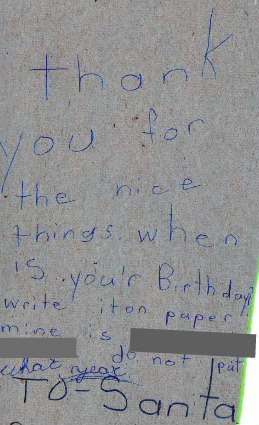 thank
you for
the nice
things. when
is you'r Birthday?
write it on paper!
mine is
do not put
what year
TO-Santa